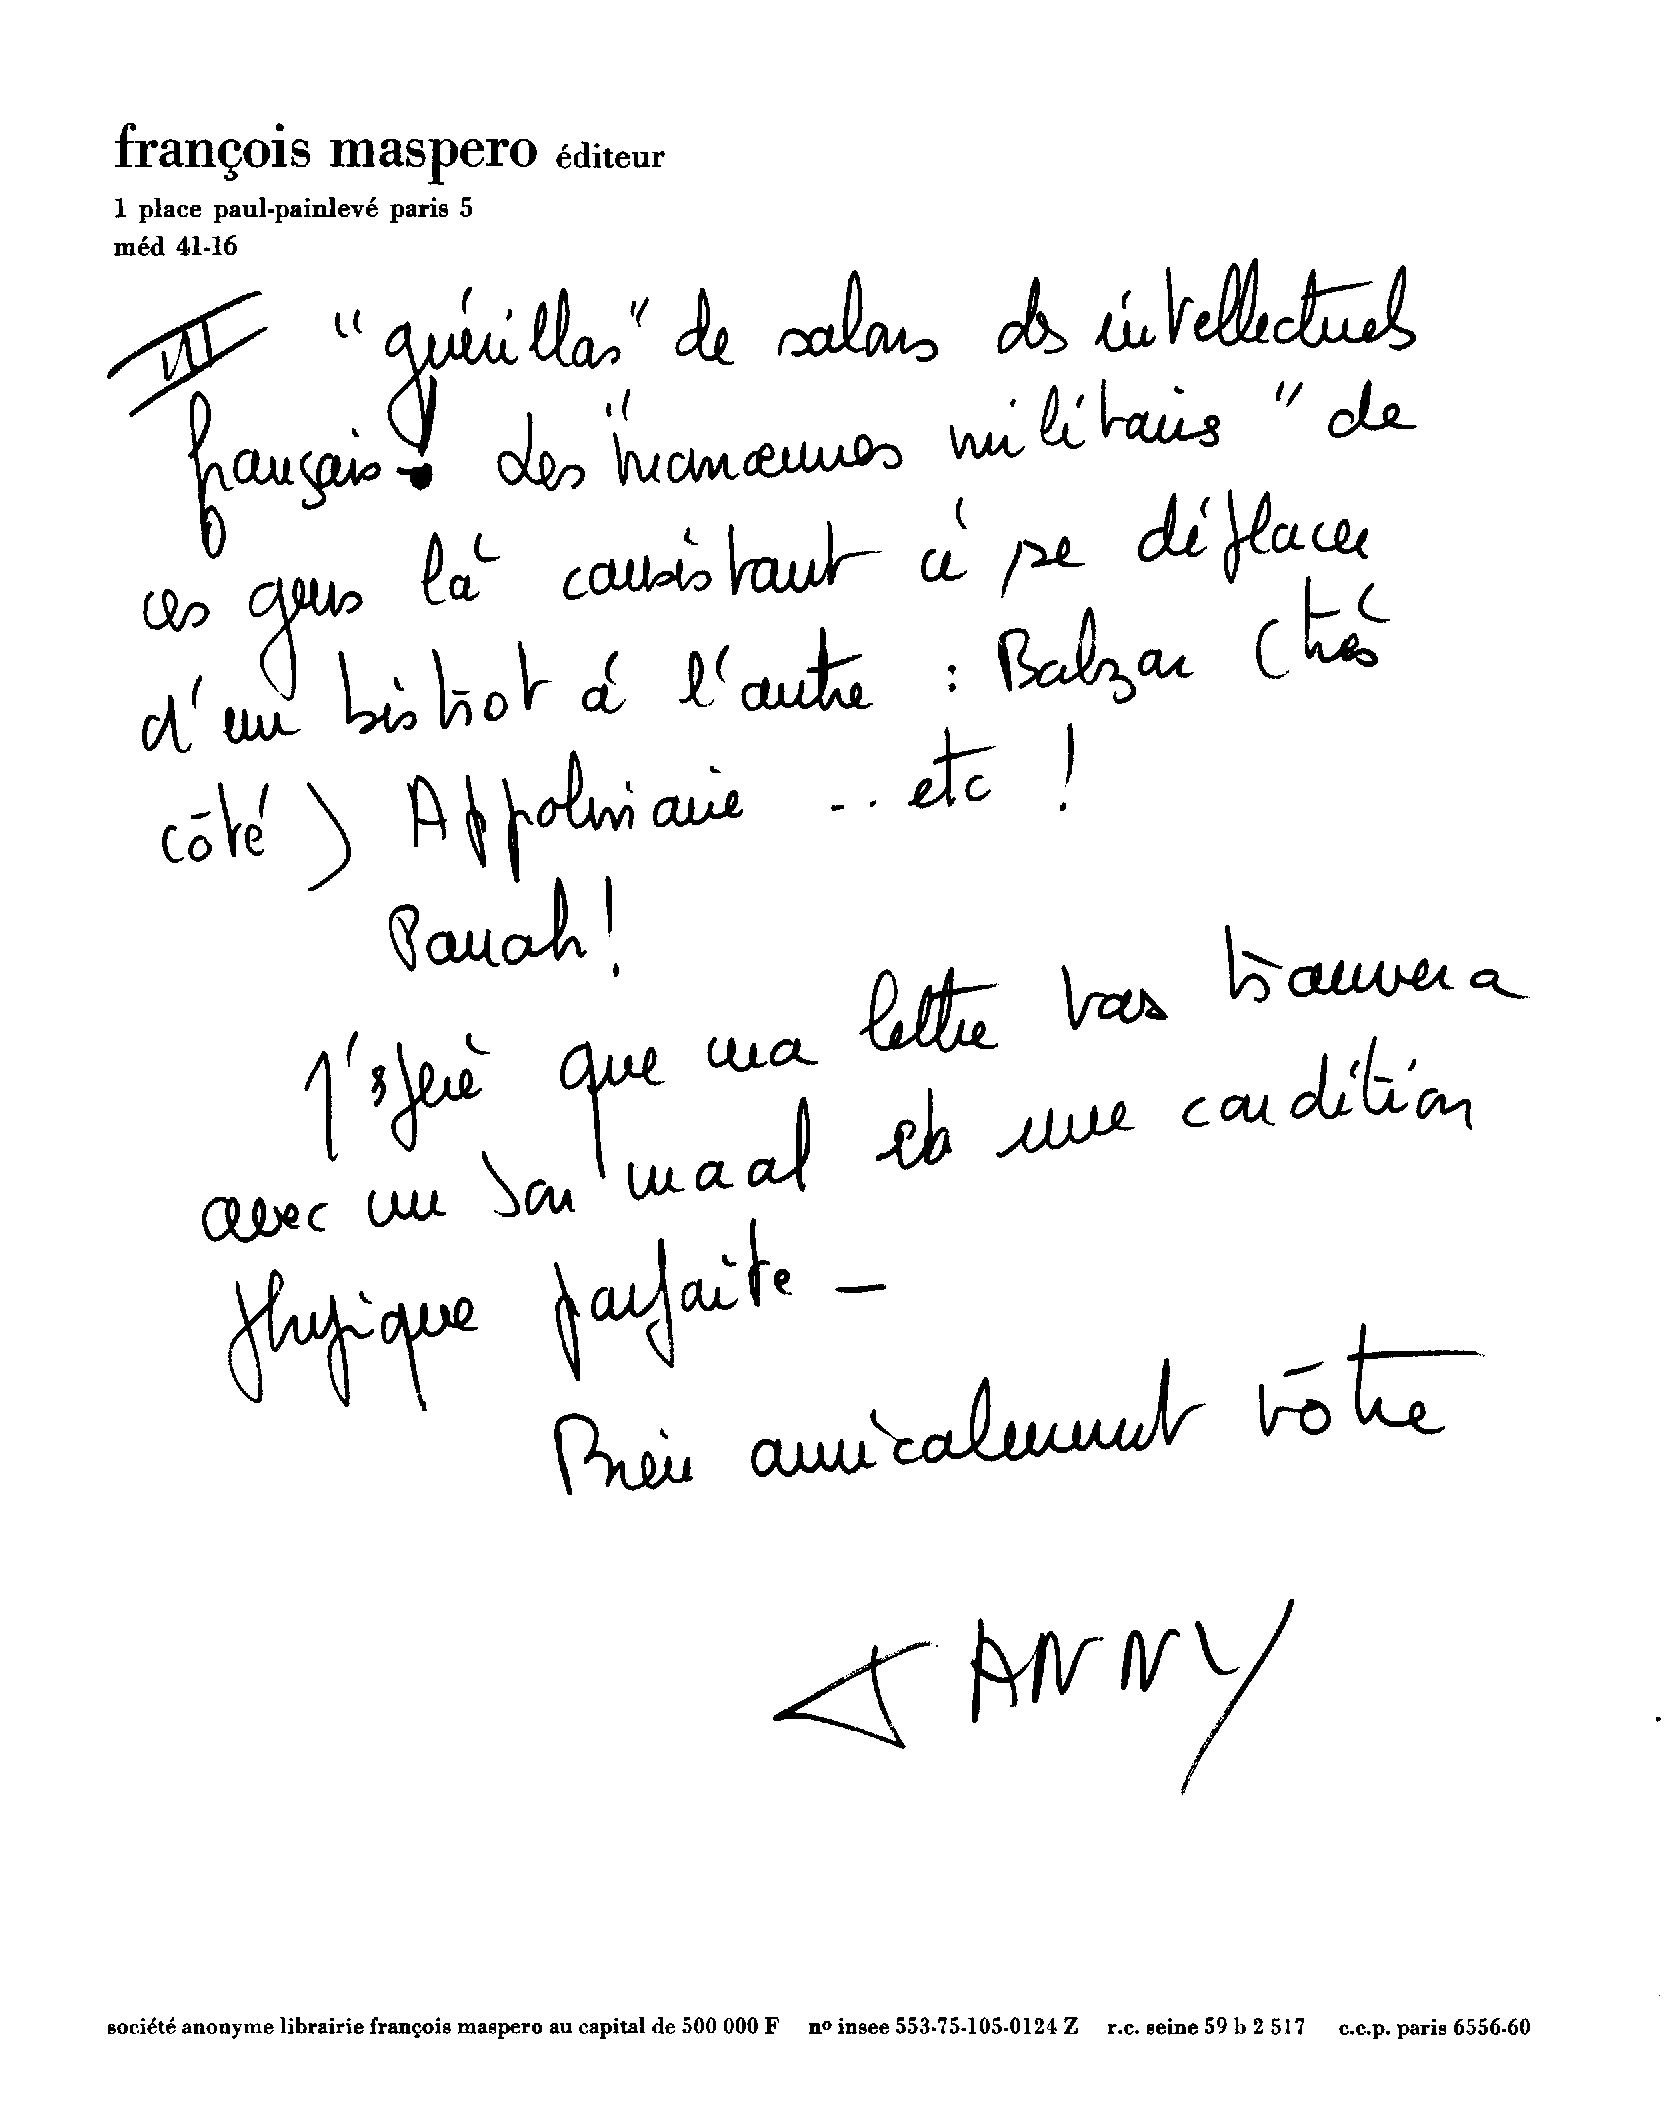 françois maspero éditeur
1 place paul-painlevé paris 5
méd 41-16
VII "guérillas" de salons des intellectuels
français! Les "manœuvres militaires" de
ces gens là consistant à se déplacer
d'un bistrot à l'autre : Balzar (très
côté) Appolinaire ... etc !
Pouah!
J'espère que ma lettre vous trouvera
avec un bon moral et une condition
physique parfaite —
Bien amicalement vôtre
FANNY
société anonyme librairie françois maspero au capital de 500 000 F nº insee 553-75-105-0124 Z r.c. seine 59 b 2 517 c.c.p. paris 6556-60